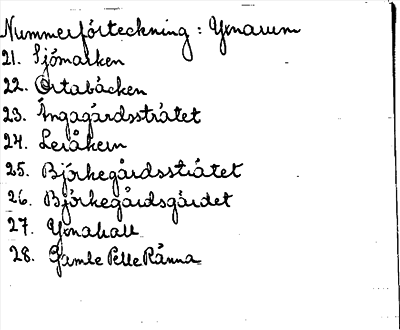 Nummerförteckning: Yxnarum
21. Sjömarken
22. Ortabäcken
23. Ängagårdssträtet
24. Leråkern
25. Björkegårdssträtet
26. Björkegårdsgärdet
27. Yxnahall
28. Gamle Pelle Ränna